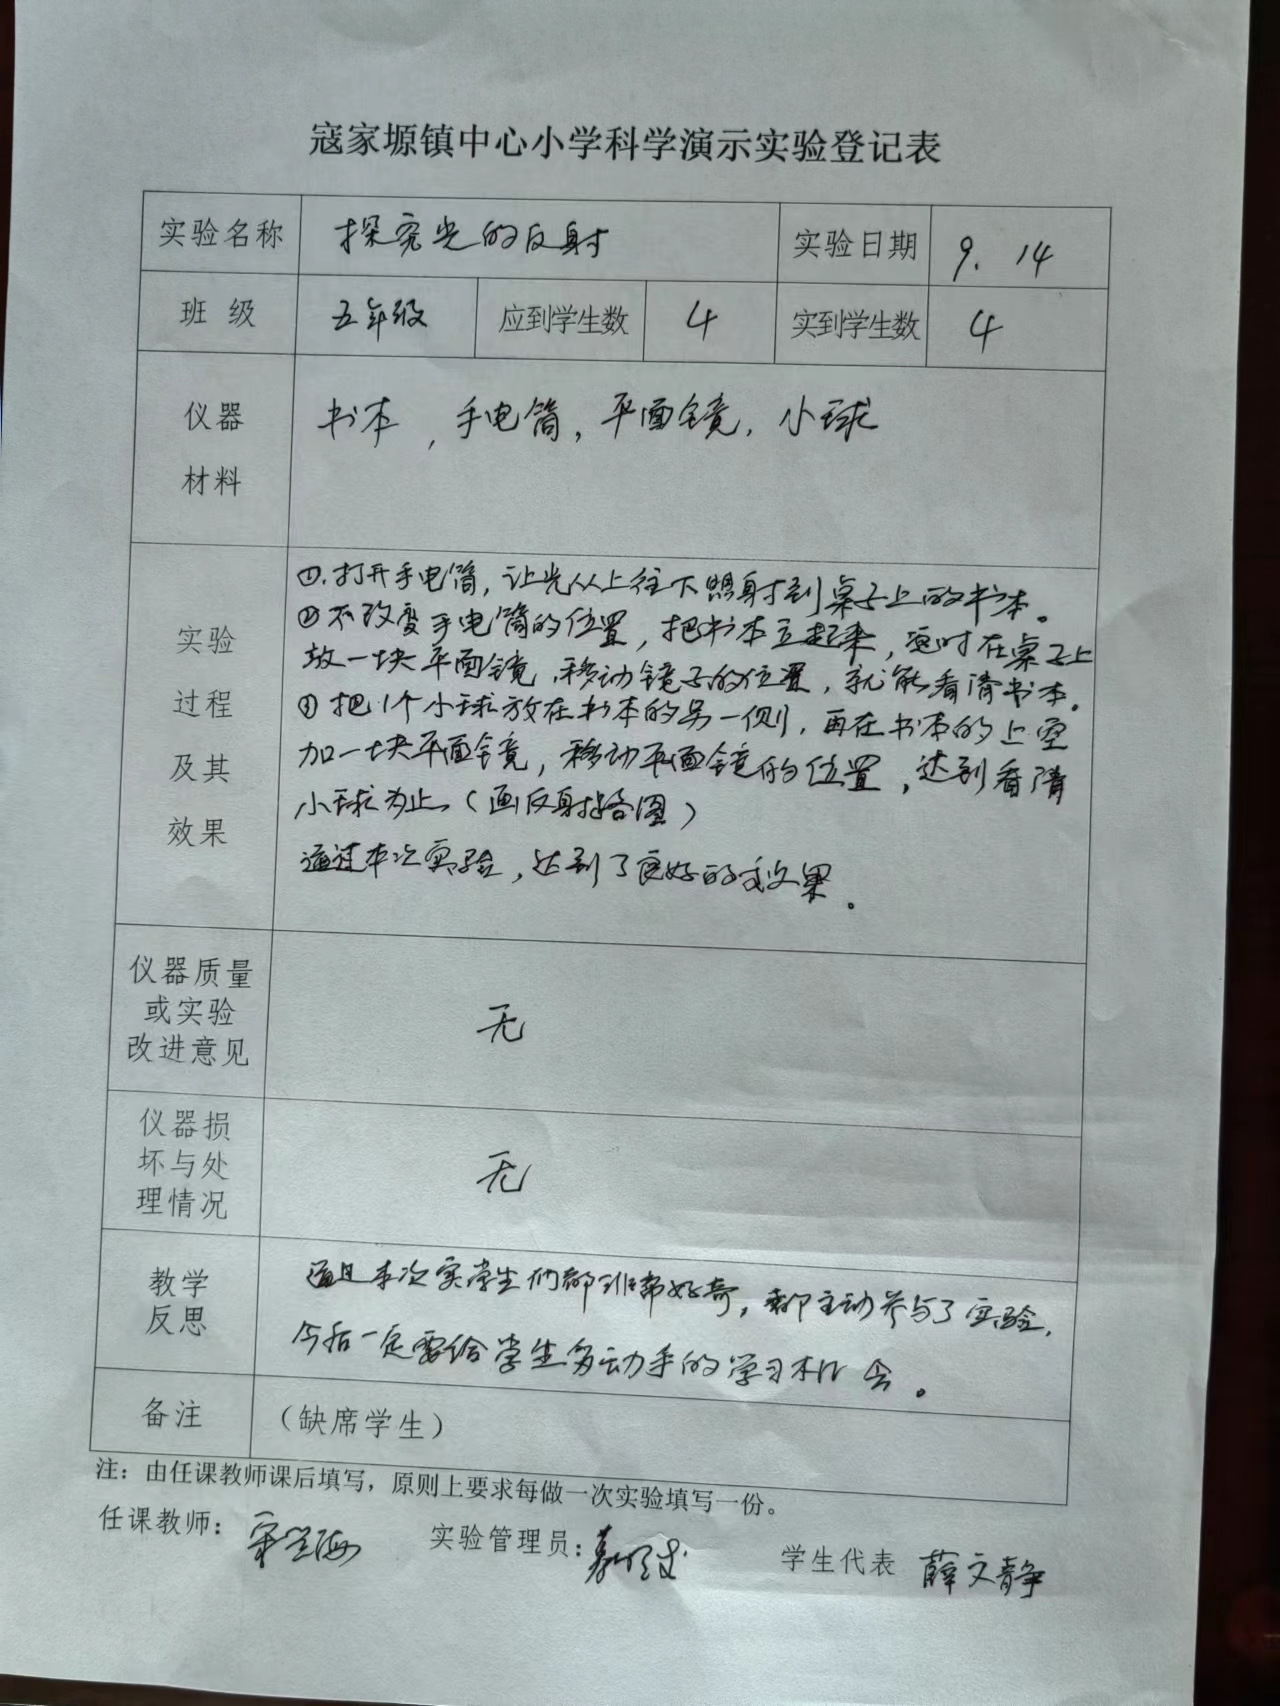 寇家塬镇中心小学科学演示实验登记表
实验名称 探究光的反射 实验日期 9. 14
班 级 五年级 应到学生数 4 实到学生数 4
仪器
材料
书本，手电筒，平面镜，小球
实验
过程
及其
效果
①.打开手电筒，让光从上往下照射到桌子上的书本。
②不改变手电筒的位置，把书本立起来，这时在桌子上
放一块平面镜，移动镜子的位置，就能看清书本。
③把1个小球放在书本的另一侧，再在书本的上空
加一块平面镜，移动平面镜的位置，达到看清
小球为止。（画反射路图）
通过本次实验，达到了良好的效果。
仪器质量
或实验
改进意见
无
仪器损
坏与处
理情况
无
教学
反思
通过本次实学生们都非常好奇，都主动参与了实验，
今后一定要给学生多动手的学习机会。
备注 （缺席学生）
注：由任课教师课后填写，原则上要求每做一次实验填写一份。
任课教师： 实验管理员： 学生代表 薛文静